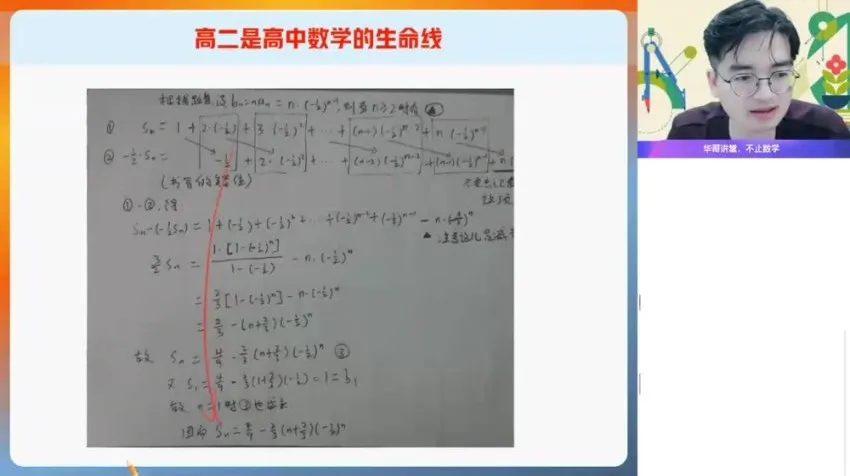 高二是高中数学的生命线
根据题意,设 bn=nan = n·(-1/2)^(n-1),则当 n≥2 时有
① Sn = 1 + 2·(-1/2) + 3·(-1/2)^2 + … + (n-1)(-1/2)^(n-2) + n(-1/2)^(n-1)
② -1/2·Sn = -1/2 + 2·(-1/2)^2 + … + (n-2)(-1/2)^(n-2) + (n-1)(-1/2)^(n-1) + n
(书写的错位)
①-②,得
Sn-(-1/2Sn) = 1+(-1/2)+(-1/2)^2+…+(-1/2)^(n-2)+(-1/2)^(n-1) - n·(-1/2)^n
3/2 Sn = 1·[1-(-1/2)^n] / 1-(-1/2) - n·(-1/2)^n
= 2/3[1-(-1/2)^n] - n·(-1/2)^n
= 2/3 - (n+2/3)(-1/2)^n
故 Sn = 4/9 - 2/3(n+2/3)(-1/2)^n ③
又 S1 = 4/9 - 2/3(1+2/3)(-1/2) = 1 = b1
故 n=1 时③也成立
因而 Sn = 4/9 - 2/3(n+2/3)(-1/2)^n
华帮讲堂,不止数学